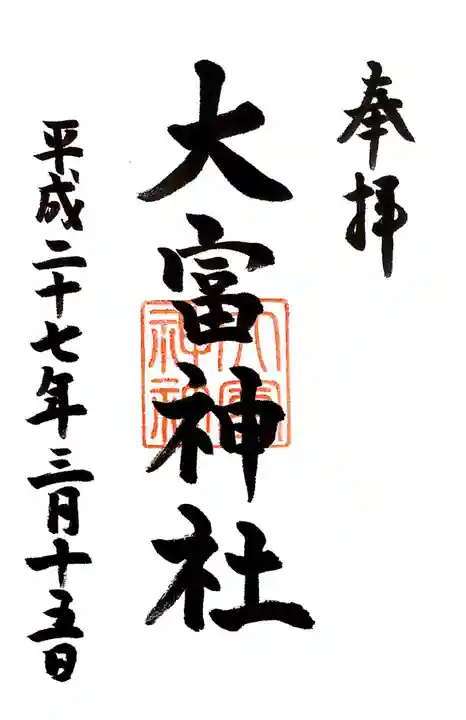 奉拝
大富神社
平成二十七年三月十五日